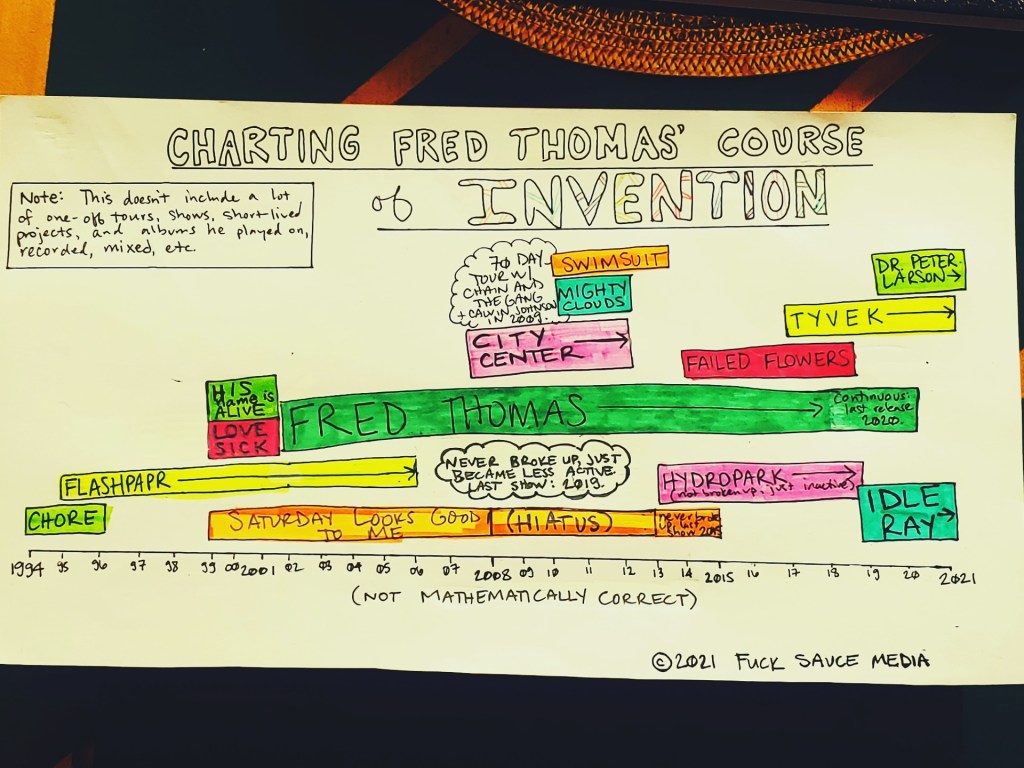 CHARTING FRED THOMAS' COURSE
of INVENTION
Note: This doesn't include a lot
of one-off tours, shows, short-lived
projects, and albums he played on,
recorded, mixed, etc.
70 DAY
TOUR W/
CHAIN AND
THE GANG
+ CALVIN JOHNSON
IN 2009.
SWIMSUIT
MIGHTY
CLOUDS
CITY
CENTER
DR. PETER
LARSON
TYVEK
FAILED FLOWERS
HIS
Name is
ALIVE
LOVE
SICK
FRED THOMAS
Continuous:
last release
2020.
FLASHPAPR
NEVER BROKE UP, JUST
BECAME LESS ACTIVE.
LAST SHOW: 2019.
HYDROPARK
(not broken up, just inactive)
IDLE
RAY
CHORE
SATURDAY LOOKS GOOD
TO ME
(HIATUS)
never broke
up, last
show 2015
1994 95 96 97 98 99 00 2001 02 03 04 05 06 07 2008 09 10 11 12 13 14 2015 16 17 18 19 20 2021
(NOT MATHEMATICALLY CORRECT)
©2021 FUCK SAUCE MEDIA